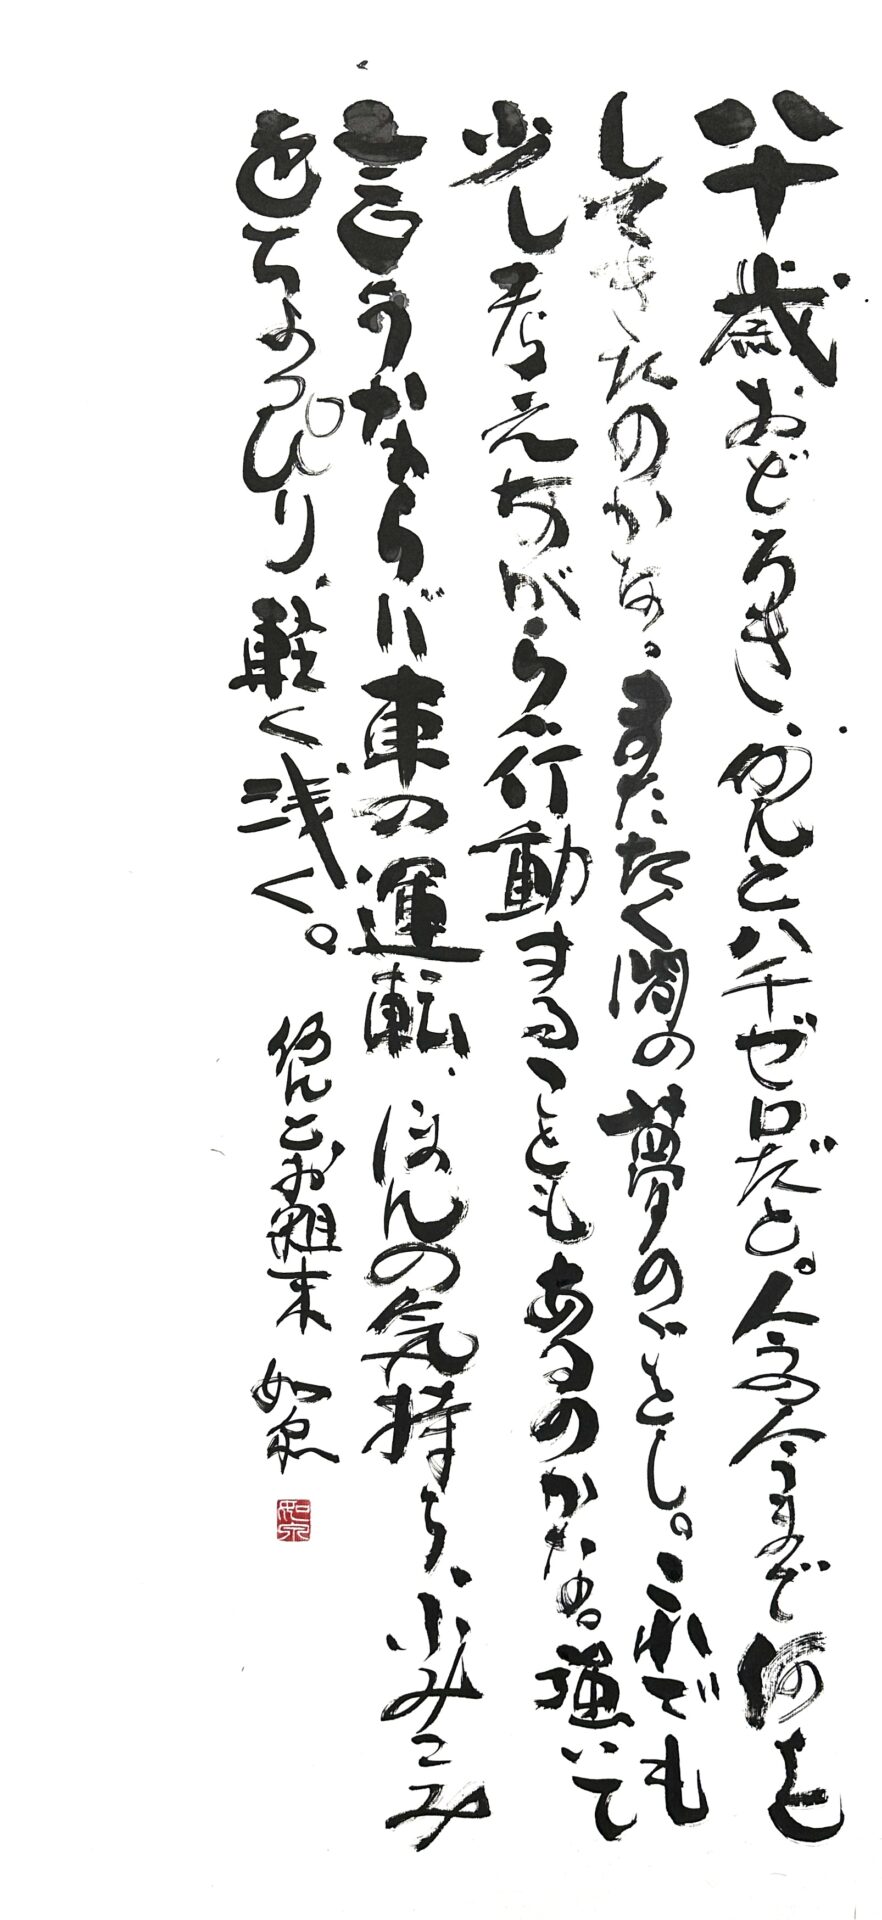 八十歳おどろき、何んと八十ゼロだと。人の今まで何を
してきたのかな。またたく間の夢のごとし。これでも
少し考えながら行動することもあるのかなあ。強いて
言うならば車の運転、ほんの気持ち、ふみこみ
をちょっぴり、軽く浅く。
何んとお粗末 如泉
如泉